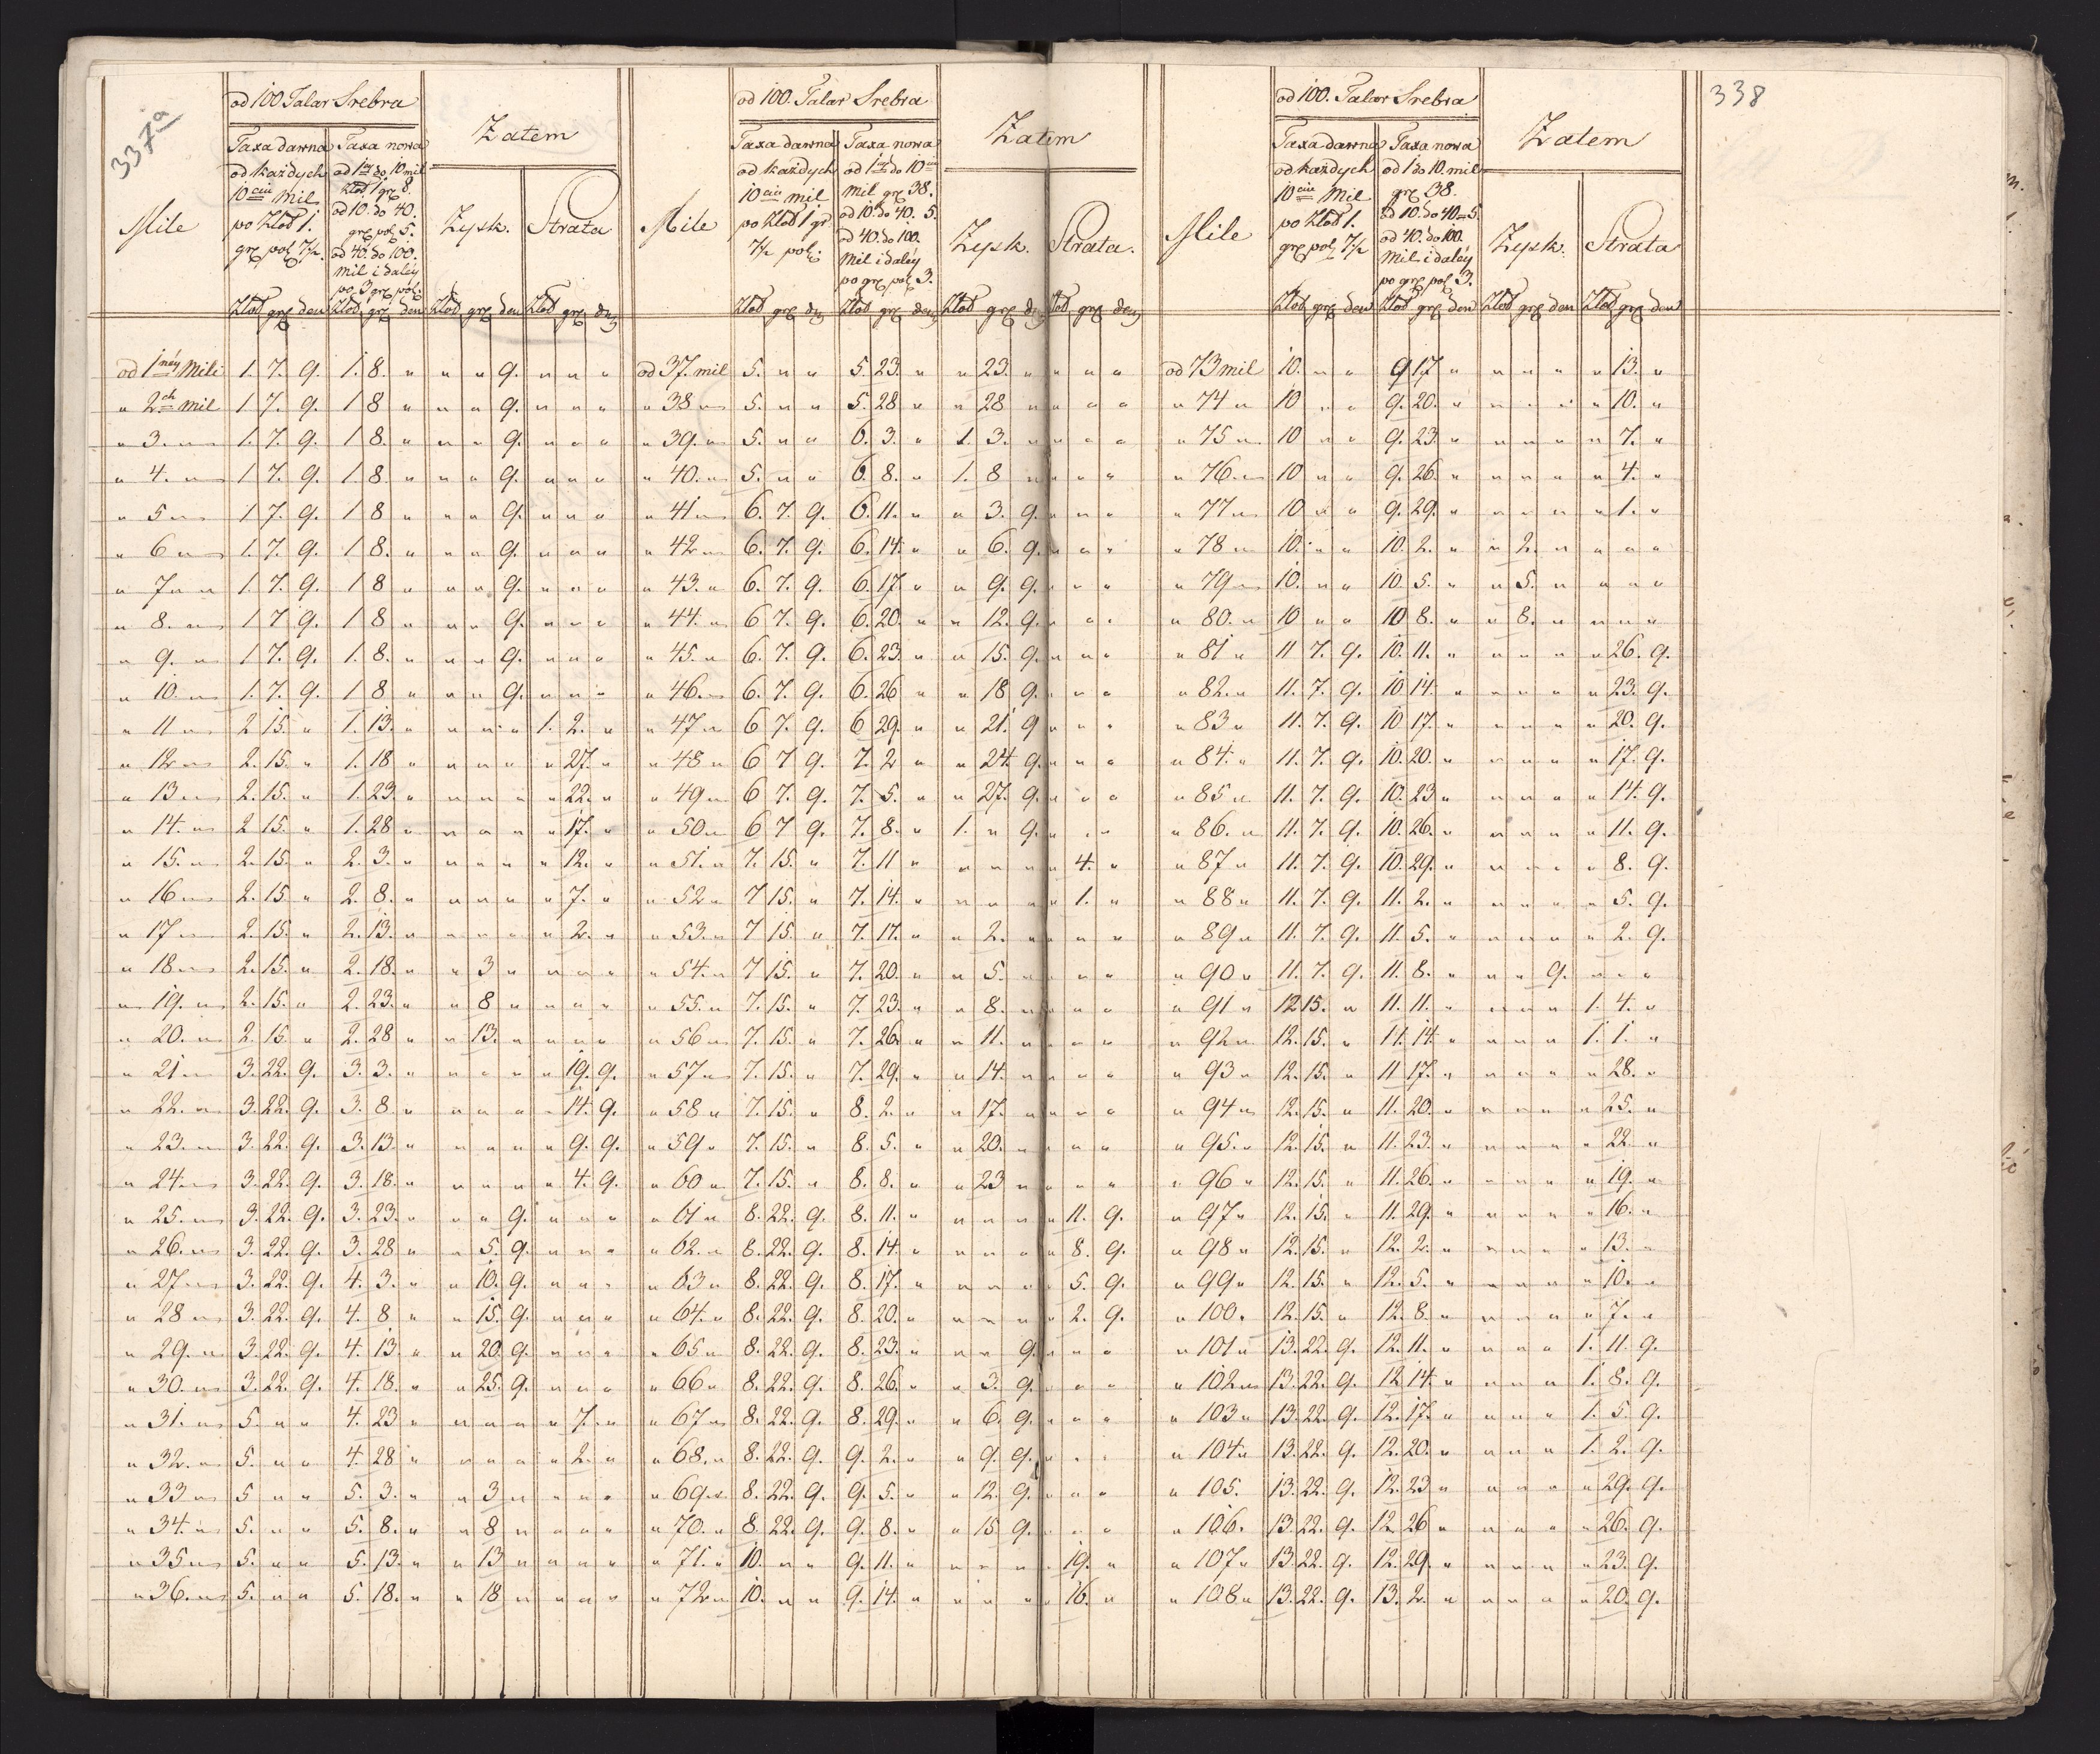 337a
338
od 100 Talar Srebra
Zatem
Mile
Taxa dawna
od każdych
10ciu Mil
po Złot 1.
grę pol 7/2.
Taxa nowa
od 1ney do 10 mil
Złot 1 grę 8.
od 10. do 40.
grę pol 5.
od 40. do 100.
mil i daley
po 3 grę pol:
Zysk. Strata
Złot grę den Złot grę den Złot grę den Złot grę den
od 1ney Mili 1. 7. 9. 1. 8. " " " 9. " " "
" 2ch Mil 1 7. 9. 1 8 " " " 9. " " "
" 3. " 1. 7. 9. 1 8. " " " 9. " " "
" 4. " 1 7. 9. 1. 8. " " " 9. " " "
" 5 " 1 7. 9. 1 8 " " " 9. " " "
" 6 " 1. 7. 9. 1 8. " " " 9. " " "
" 7 " 1. 7. 9. 1 8 " " " 9. " " "
" 8. " 1 7 9. 1 8 " " " 9. " " "
" 9. " 1 7. 9. 1. 8. " " " 9. " " "
" 10. " 1. 7. 9. 1 8 " " " 9. " " "
" 11 " 2 15. " 1. 13. " " " " 1. 2. "
" 12 " 2. 15. " 1. 18 " " " " " 27. "
" 13 " 2. 15. " 1. 23. " " " " " 22. "
" 14. " 2 15. " 1. 28 " " " " " 17. "
" 15. " 2. 15. " 2. 3. " " " " " 12. "
" 16 " 2. 15 " 2. 8. " " " " " 7. "
" 17 " 2. 15. " 2. 13. " " " " " 2. "
" 18 " 2. 15. " 2. 18. " " 3 " " " "
" 19. " 2. 15. " 2. 23. " " 8 " " " "
" 20. " 2. 15. " 2. 28 " " 13. " " " "
" 21 " 3. 22. 9. 3. 3. " " " " " 19. 9.
" 22. " 3. 22. 9. 3. 8. " " " " " 14. 9.
" 23. " 3. 22. 9. 3. 13. " " " " " 9. 9.
" 24. " 3. 22. 9. 3. 18. " " " " " 4. 9.
" 25. " 3. 22. 9. 3. 23. " " " 9. " " "
" 26. " 3. 22. 9. 3. 28 " " 5. 9. " " "
" 27 " 3. 22. 9. 4. 3. " " 10. 9. " " "
" 28 " 3. 22. 9. 4. 8 " " 15. 9. " " "
" 29. " 3. 22. 9. 4. 13. " " 20. 9. " " "
" 30. " 3. 22. 9. 4. 18. " " 25. 9. " " "
" 31. " 5. " " 4. 23 " " " " " 7. "
" 32. " 5. " " 4. 28 " " " " " 2. "
" 33 " 5 " " 5. 3. " " 3 " " " "
" 34. " 5. " " 5. 8. " " 8 " " " "
" 35 " 5. " " 5. 13. " " 13 " " " "
" 36. " 5. " " 5. 18. " " 18 " " " "
od 100. Talar Srebra
Zatem
Mile
Taxa dawna
od każdych
10ciu mil
po Złot 1 gr
7/2 pol:
Taxa nowa
od 1ney do 10ciu
Mil grę 38.
od 10. do 40. 5.
od 40. do 100.
Mil i daley
po grę pol 3.
Zysk. Strata.
Złot grę den Złot grę den Złot grę den Złot grę den
od 37. mil 5. " " 5. 23. " " 23. " " " "
" 38 " 5. " " 5. 28 " " 28 " " " "
" 39. " 5. " " 6. 3. " 1. 3. " " " "
" 40. " 5. " " 6. 8. " 1. 8 " " " "
" 41 " 6. 7. 9. 6. 11. " " 3. 9. " " "
" 42 " 6. 7. 9. 6. 14. " " 6. 9. " " "
" 43. " 6. 7. 9. 6. 17. " " 9. 9. " " "
" 44. " 6 7. 9. 6. 20. " " 12. 9. " " "
" 45. " 6. 7. 9. 6. 23. " " 15. 9. " " "
" 46. " 6. 7. 9. 6. 26 " " 18 9. " " "
" 47 " 6 7. 9. 6 29. " " 21. 9 " " "
" 48 " 6 7 9. 7. 2 " " 24. 9. " " "
" 49 " 6 7. 9. 7. 5. " " 27. 9. " " "
" 50 " 6 7 9. 7. 8. " 1. " 9. " " "
" 51. " 7. 15. " 7. 11 " " " " " 4. "
" 52 " 7 15. " 7. 14. " " " " " 1. "
" 53. " 7 15. " 7. 17. " " 2. " " " "
" 54. " 7 15. " 7. 20. " " 5. " " " "
" 55. " 7. 15. " 7. 23. " " 8. " " " "
" 56 " 7. 15. " 7. 26. " " 11. " " " "
" 57 " 7. 15. " 7. 29. " " 14. " " " "
" 58 " 7. 15. " 8. 2. " " 17. " " " "
" 59. " 7. 15. " 8. 5. " " 20. " " " "
" 60 " 7. 15. " 8. 8. " " 23 " " " "
" 61 " 8. 22. 9. 8. 11. " " " " " 11. 9.
" 62. " 8. 22. 9. 8. 14. " " " " " 8. 9.
" 63 " 8. 22. 9. 8. 17. " " " " " 5. 9.
" 64. " 8. 22. 9. 8. 20. " " " " " 2. 9.
" 65 " 8. 22. 9. 8. 23. " " " 9. " " "
" 66 " 8. 22. 9. 8. 26. " " 3. 9. " " "
" 67 " 8. 22. 9. 8. 29. " " 6. 9. " " "
" 68. " 8. 22. 9. 9. 2. " " 9. 9. " " "
" 69. " 8. 22. 9. 9. 5. " " 12. 9. " " "
" 70. " 8. 22. 9. 9. 8. " " 15 9. " " "
" 71. " 10. " " 9. 11. " " " " " 19. "
" 72 " 10. " " 9. 14. " " " " " 16. "
od 100. Talar Srebra
Zatem
Mile
Taxa dawna
od każdych
10ciu Mil
po Złot 1.
grę pol 7/2
Taxa nowa
od 1 do 10. mil
grę 38.
od 10. do 40 = 5.
od 40. do 100.
Mil i daley
po grę pol 3.
Zysk. Strata
Złot grę den Złot grę den Złot grę den Złot grę den
od 73 mil 10. " " 9 17 " " " " " 13. "
" 74 " 10 " " 9. 20. " " " " " 10. "
" 75 " 10 " " 9. 23. " " " " " 7. "
" 76 " 10 " " 9. 26. " " " " " 4. "
" 77 " 10 " " 9. 29. " " " " " 1. "
" 78 " 10. " " 10. 2. " " 2. " " " "
" 79 " 10. " " 10. 5. " " 5. " " " "
" 80. " 10 " " 10 8. " " 8. " " " "
" 81 " 11 7. 9. 10. 11. " " " " " 26. 9.
" 82. " 11. 7. 9. 10 14. " " " " " 23. 9.
" 83 " 11. 7. 9. 10 17. " " " " " 20. 9.
" 84. " 11. 7. 9. 10. 20. " " " " " 17. 9.
" 85 " 11. 7. 9. 10. 23 " " " " " 14. 9.
" 86. " 11. 7. 9. 10. 26. " " " " " 11. 9.
" 87 " 11. 7. 9. 10. 29. " " " " " 8. 9.
" 88 " 11. 7. 9. 11. 2. " " " " " 5. 9.
" 89 " 11. 7. 9. 11. 5. " " " " " 2. 9.
" 90 " 11. 7. 9. 11. 8. " " " 9. " " "
" 91 " 12 15. " 11. 11. " " " " 1. 4. "
" 92 " 12. 15. " 11. 14. " " " " 1. 1. "
" 93 " 12. 15. " 11 17. " " " " " 28. "
" 94 " 12. 15. " 11. 20. " " " " " 25. "
" 95. " 12. 15. " 11. 23. " " " " " 22. "
" 96 " 12. 15. " 11. 26. " " " " " 19. "
" 97 " 12. 15. " 11. 29. " " " " " 16. "
" 98 " 12. 15. " 12. 2. " " " " " 13. "
" 99 " 12. 15. " 12. 5. " " " " " 10. "
" 100. 12. 15. " 12. 8. " " " " " 7. "
" 101 " 13. 22. 9. 12. 11. " " " " 1. 11. 9.
" 102 " 13. 22. 9. 12 14. " " " " 1. 8. 9.
" 103 " 13. 22. 9. 12. 17. " " " " 1. 5. 9.
" 104 " 13. 22. 9. 12. 20. " " " " 1. 2. 9.
" 105. 13. 22. 9. 12. 23 " " " " " 29. 9.
" 106. 13. 22. 9. 12. 26 " " " " " 26. 9.
" 107 " 13. 22. 9. 12. 29. " " " " " 23. 9.
" 108 " 13. 22. 9. 13. 2. " " " " " 20. 9.